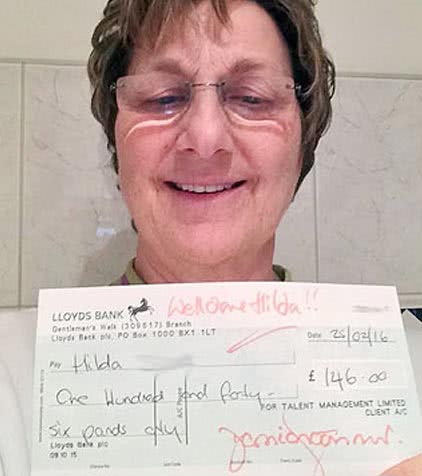 LLOYDS BANK
Well done Hilda!!
Gentleman's Walk (309617) Branch
Lloyds Bank plc, PO Box 1000 BX1 1LT
Date 25/02/16
Pay Hilda
£ 146-00
One Hundred and forty-
A/C Payee
FOR TALENT MANAGEMENT LIMITED
CLIENT A/C
six pounds only
Lloyds Bank plc
09 10 15